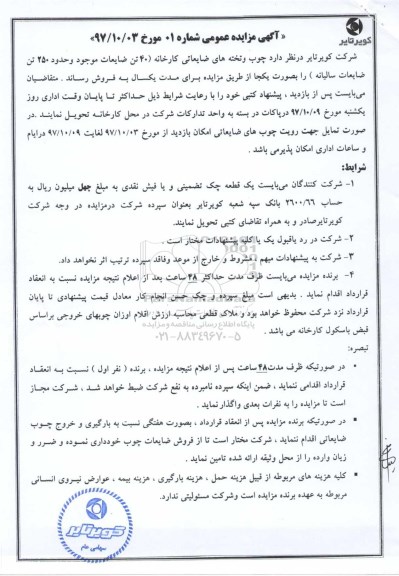 کویرتایر
« آگهی مزایده عمومی شماره ۰۱ مورخ ۹۷/۱۰/۰۳»
شرکت کویرتایر درنظر دارد چوب وتخته های ضایعاتی کارخانه (۴۰ تن ضایعات موجود وحدود ۲۵۰ تن
ضایعات سالیانه ) را بصورت یکجا از طریق مزایده برای مدت یکسال به فروش رساند . متقاضیان
می‌بایست پس از بازدید ، پیشنهاد کتبی خود را با رعایت شرایط ذیل حداکثر تا پایان وقت اداری روز
یکشنبه مورخ ۹۷/۱۰/۰۹ درپاکات در بسته به واحد تدارکات شرکت در محل کارخانه تحویل نمایند .در
صورت تمایل جهت رویت چوب های ضایعاتی امکان بازدید از مورخ ۹۷/۱۰/۰۳ لغایت ۹۷/۱۰/۰۹ درایام
و ساعات اداری امکان پذیرمی باشد .
شرایط:
۱- شرکت کنندگان می‌بایست یک قطعه چک تضمینی و یا فیش نقدی به مبلغ چهل میلیون ریال به
حساب ۲۶۰۰/۶۶ بانک سپه شعبه کویرتایر بعنوان سپرده شرکت درمزایده در وجه شرکت
کویرتایرصادر و به همراه تقاضای کتبی تحویل نمایند.
۲- شرکت در رد یاقبول یک یا کلیه پیشنهادات مختار است .
۳- شرکت به پیشنهادات مبهم ،مشروط و خارج از موعد وفاقد سپرده ترتیب اثر نخواهد داد.
۴- برنده مزایده می‌بایست ظرف مدت حداکثر ۴۸ ساعت بعد از اعلام نتیجه مزایده نسبت به انعقاد
قرارداد اقدام نماید . بدیهی است مبلغ سپرده و چک حسن انجام کار معادل قیمت پیشنهادی تا پایان
قرارداد نزد شرکت محفوظ خواهد بود و ملاک قطعی محاسبه ارزش اقلام اوزان چوبهای خروجی براساس
قبض باسکول کارخانه می باشد .
پایگاه اطلاع رسانی مناقصه و مزایده
۰۲۱-۸۸۳۴۹۶۷۰-۵
تبصره:
• در صورتیکه ظرف مدت۴۸ ساعت پس از اعلام نتیجه مزایده ، برنده ( نفر اول ) نسبت به انعقاد
قرارداد اقدامی ننماید ، ضمن اینکه سپرده نامبرده به نفع شرکت ضبط خواهد شد ، شرکت مجاز
است تا مزایده را به نفرات بعدی واگذارنماید .
• در صورتیکه برنده مزایده پس از انعقاد قرارداد ، بصورت هفتگی نسبت به بارگیری و خروج چوب
ضایعاتی اقدام ننماید ، شرکت مختار است تا از فروش ضایعات چوب خودداری نموده و ضرر و
زیان وارده را از محل وثیقه ارائه شده تامین نماید .
• کلیه هزینه های مربوطه از قبیل هزینه حمل ، هزینه بارگیری ، هزینه بیمه ، عوارض نیروی انسانی
مربوطه به عهده برنده مزایده است وشرکت مسئولیتی ندارد.
کویرتایر
سهامی عام